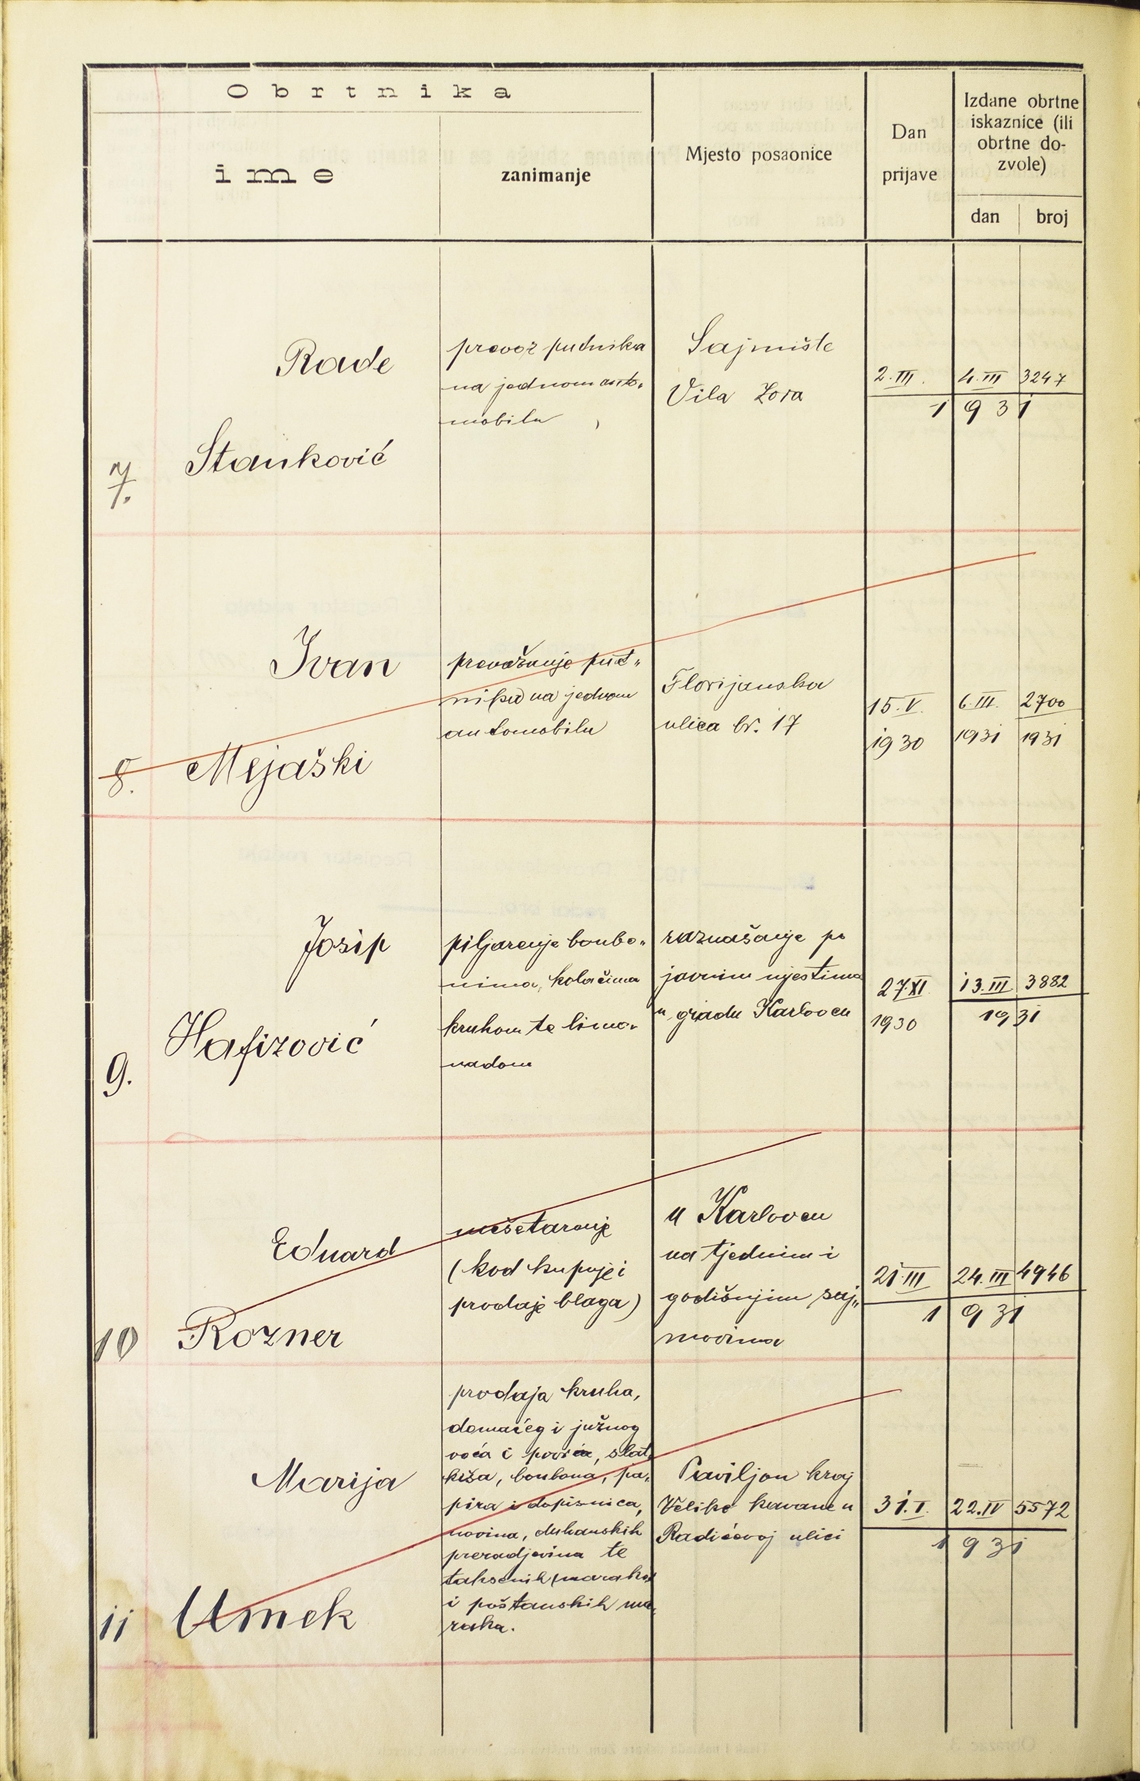 Obrtnika
ime
zanimanje
Mjesto posaonice
Dan
prijave
Izdane obrtne
iskaznice (ili
obrtne do-
zvole)
dan
broj
7.
Rade
Stanković
prevoz putnika
na jednom auto-
mobilu
Sajmište
Vila Zora
2. III.
4. III
3247
1931
8.
Ivan
Mejaški
prevažanje put-
nika na jednom
automobilu
Florijanska
ulica br. 17
15. V.
1930
6. III.
1931
2700
1931
9.
Josip
Hafizović
piljarenje bonbo-
nima, kolačima
kruhom te limo-
nadom
raznašanje po
javnim mjestima
u gradu Karlovcu
27. XI
1930
13. III
3882
1931
10
Eduard
Rozner
mešetarenje
(kod kupnje i
prodaje blaga)
u Karlovcu
na tjednim i
godišnjim saj-
movima
21 III
24. III
4946
1931
11
Marija
Umek
prodaja kruha,
domaćeg i južnog
voća i povrća, slat-
kiša, bonbona, pa-
pira i dopisnica,
novina, duhanskih
preradjevina te
taksenih maraka
i poštanskih ma-
raka.
Paviljon kraj
Velike kavane u
Radićevoj ulici
31. I.
22. IV
5572
1931